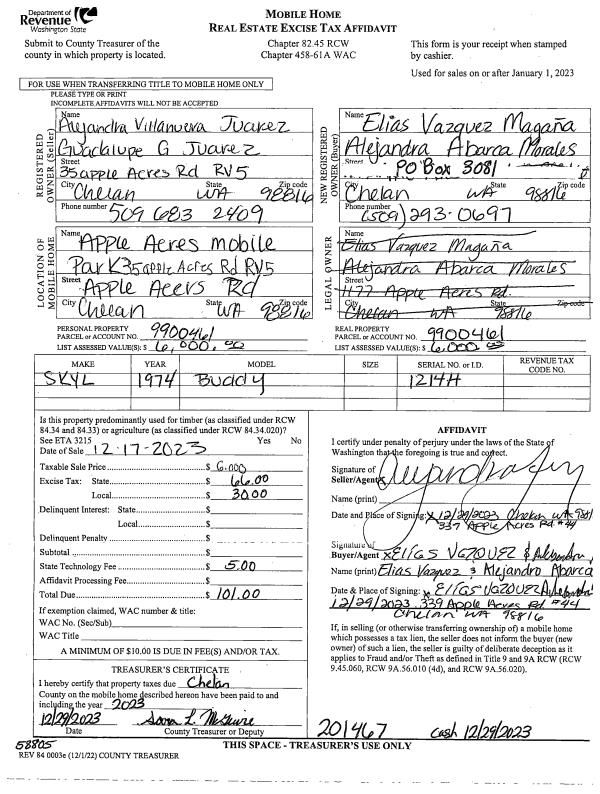 Department of
Revenue
Washington State
MOBILE HOME
REAL ESTATE EXCISE TAX AFFIDAVIT
Submit to County Treasurer of the
county in which property is located.
Chapter 82.45 RCW
Chapter 458-61A WAC
This form is your receipt when stamped
by cashier.
Used for sales on or after January 1, 2023
FOR USE WHEN TRANSFERRING TITLE TO MOBILE HOME ONLY
PLEASE TYPE OR PRINT
INCOMPLETE AFFIDAVITS WILL NOT BE ACCEPTED
REGISTERED OWNER (Seller)
Name
Alejandra Villanueva Juarez
Guadalupe G Juarez
Street
35 apple Acres Rd RV5
City State Zip code
Chelan WA 98816
Phone number
509 683 2409
NEW REGISTERED OWNER (Buyer)
Name
Elias Vazquez Magaña
Alejandra Abarca Morales
Street
PO Box 3081
City State Zip code
Chelan WA 98816
Phone number
(509) 293-0697
LOCATION OF MOBILE HOME
Name
Apple Acres mobile
Park 35 apple Acres Rd RV5
Street
Apple Acers Rd
City State Zip code
Chelan WA 98816
LEGAL OWNER
Name
Elias Vazquez Magaña
Alejandra Abarca Morales
Street
1177 Apple Acres Rd.
City State Zip code
Chelan WA 98816
PERSONAL PROPERTY
PARCEL or ACCOUNT NO. 9900461
LIST ASSESSED VALUE(S): $ 6,000.00
REAL PROPERTY
PARCEL or ACCOUNT NO. 9900461
LIST ASSESSED VALUE(S): $ 6,000.00
MAKE YEAR MODEL SIZE SERIAL NO. or I.D. REVENUE TAX CODE NO.
SKYL 1974 Buddy 1214H
Is this property predominantly used for timber (as classified under RCW
84.34 and 84.33) or agriculture (as classified under RCW 84.34.020)?
See ETA 3215 Yes No
Date of Sale 12-17-2023
Taxable Sale Price $ 6.000
Excise Tax: State $ 66.00
Local $ 30.00
Delinquent Interest: State $
Local $
Delinquent Penalty $
Subtotal $
State Technology Fee $ 5.00
Affidavit Processing Fee $
Total Due $ 101.00
If exemption claimed, WAC number & title:
WAC No. (Sec/Sub)
WAC Title
A MINIMUM OF $10.00 IS DUE IN FEE(S) AND/OR TAX.
TREASURER'S CERTIFICATE
I hereby certify that property taxes due Chelan
County on the mobile home described hereon have been paid to and
including the year 2023
12/29/2023
Date County Treasurer or Deputy
AFFIDAVIT
I certify under penalty of perjury under the laws of the State of
Washington that the foregoing is true and correct.
Signature of
Seller/Agent
Name (print)
Date and Place of Signing: x 12/29/2023 Chelan WA 98816
337 Apple Acres Rd #44
Signature of
Buyer/Agent x ELIAS VAZQUEZ & Alejandra
Name (print) Elias Vazquez & Alejandro Abarca
Date & Place of Signing: x ELIAS VAZQUEZ Alejandra
12/29/2023 339 Apple Acres Rd #44
Chelan WA 98816
If, in selling (or otherwise transferring ownership of) a mobile home
which possesses a tax lien, the seller does not inform the buyer (new
owner) of such a lien, the seller is guilty of deliberate deception as it
applies to Fraud and/or Theft as defined in Title 9 and 9A RCW (RCW
9.45.060, RCW 9A.56.010 (4d), and RCW 9A.56.020).
201467 cash 12/29/2023
58805
THIS SPACE - TREASURER'S USE ONLY
REV 84 0003e (12/1/22) COUNTY TREASURER